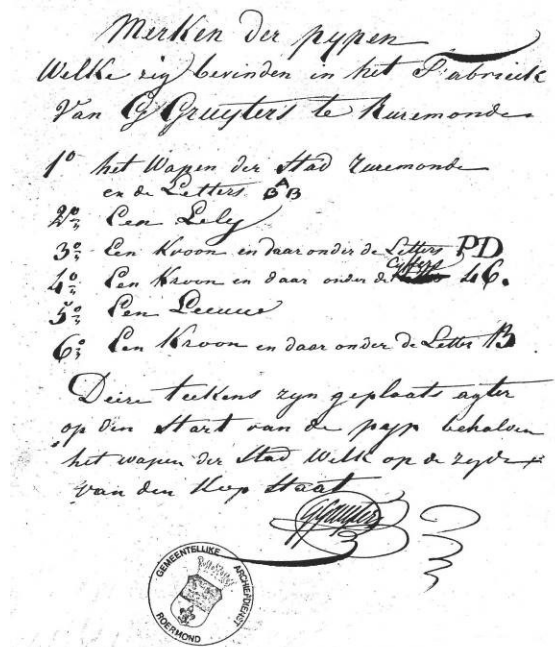 Merken der pypen
Welke zig bevinden in het Fabrieck
Van G Gruyters te Ruremonde
1º het Wapen der Stad Ruremonde
en de Letters B A B
2º Een Lely
3º Een Kroon en daar onder de Letters PD
4º Een Kroon en daar onder de Cyffers 46.
5º Een Leeuw
6º Een Kroon en daar onder de Letter B
Deise teekens zyn geplaats agter
op den Start van de pyp behalven
het wapen der Stad Welk op de zyde
van den Kop Staat
GGruyters
GEMEENTELIJKE ARCHIEFDIENST
ROERMOND